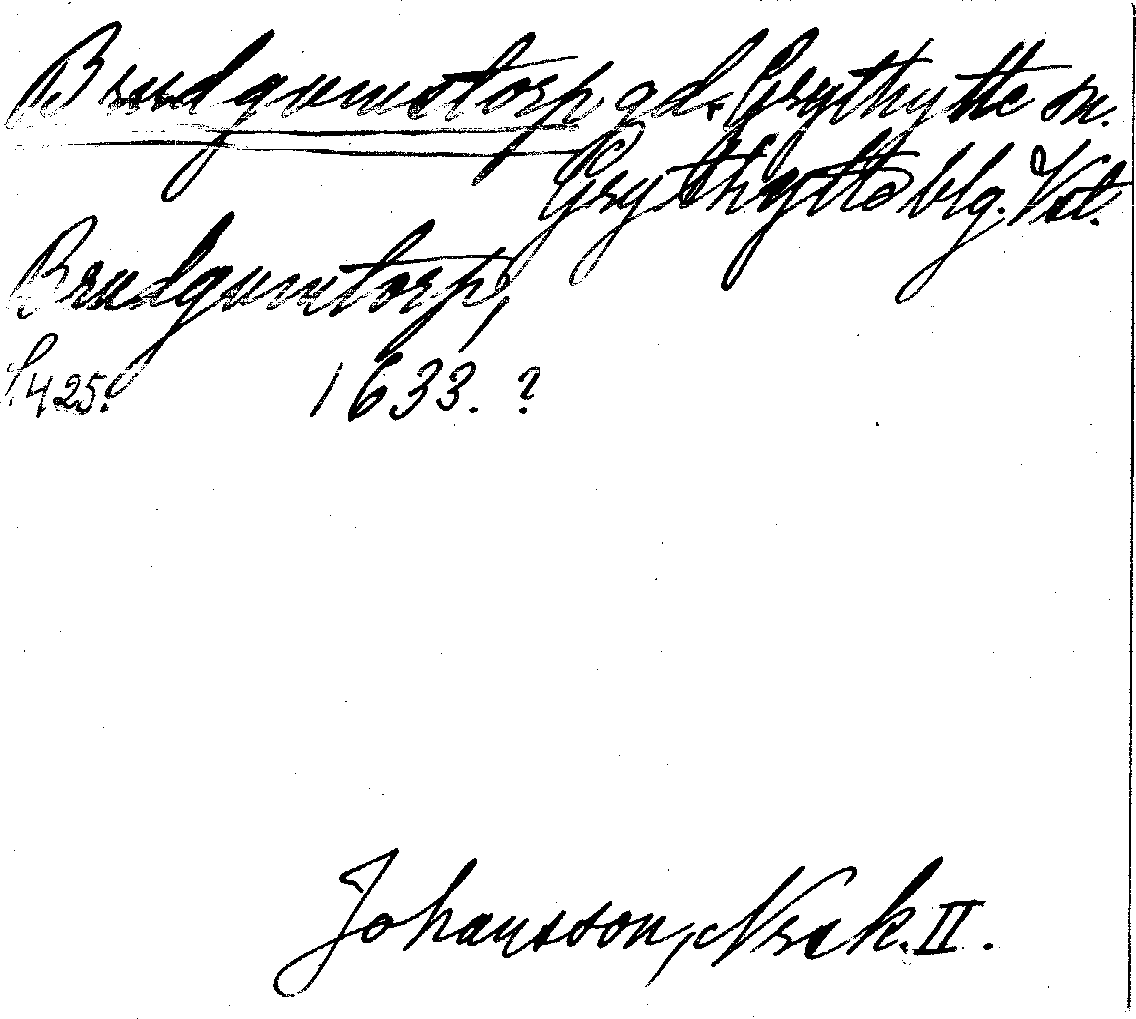 Brudgumstorp gd. Grythytte sn.
Grythytte blg. Vstl.
Brudgumtorp,
S. 425. 1633. ?
Johansson, Nrak. II.